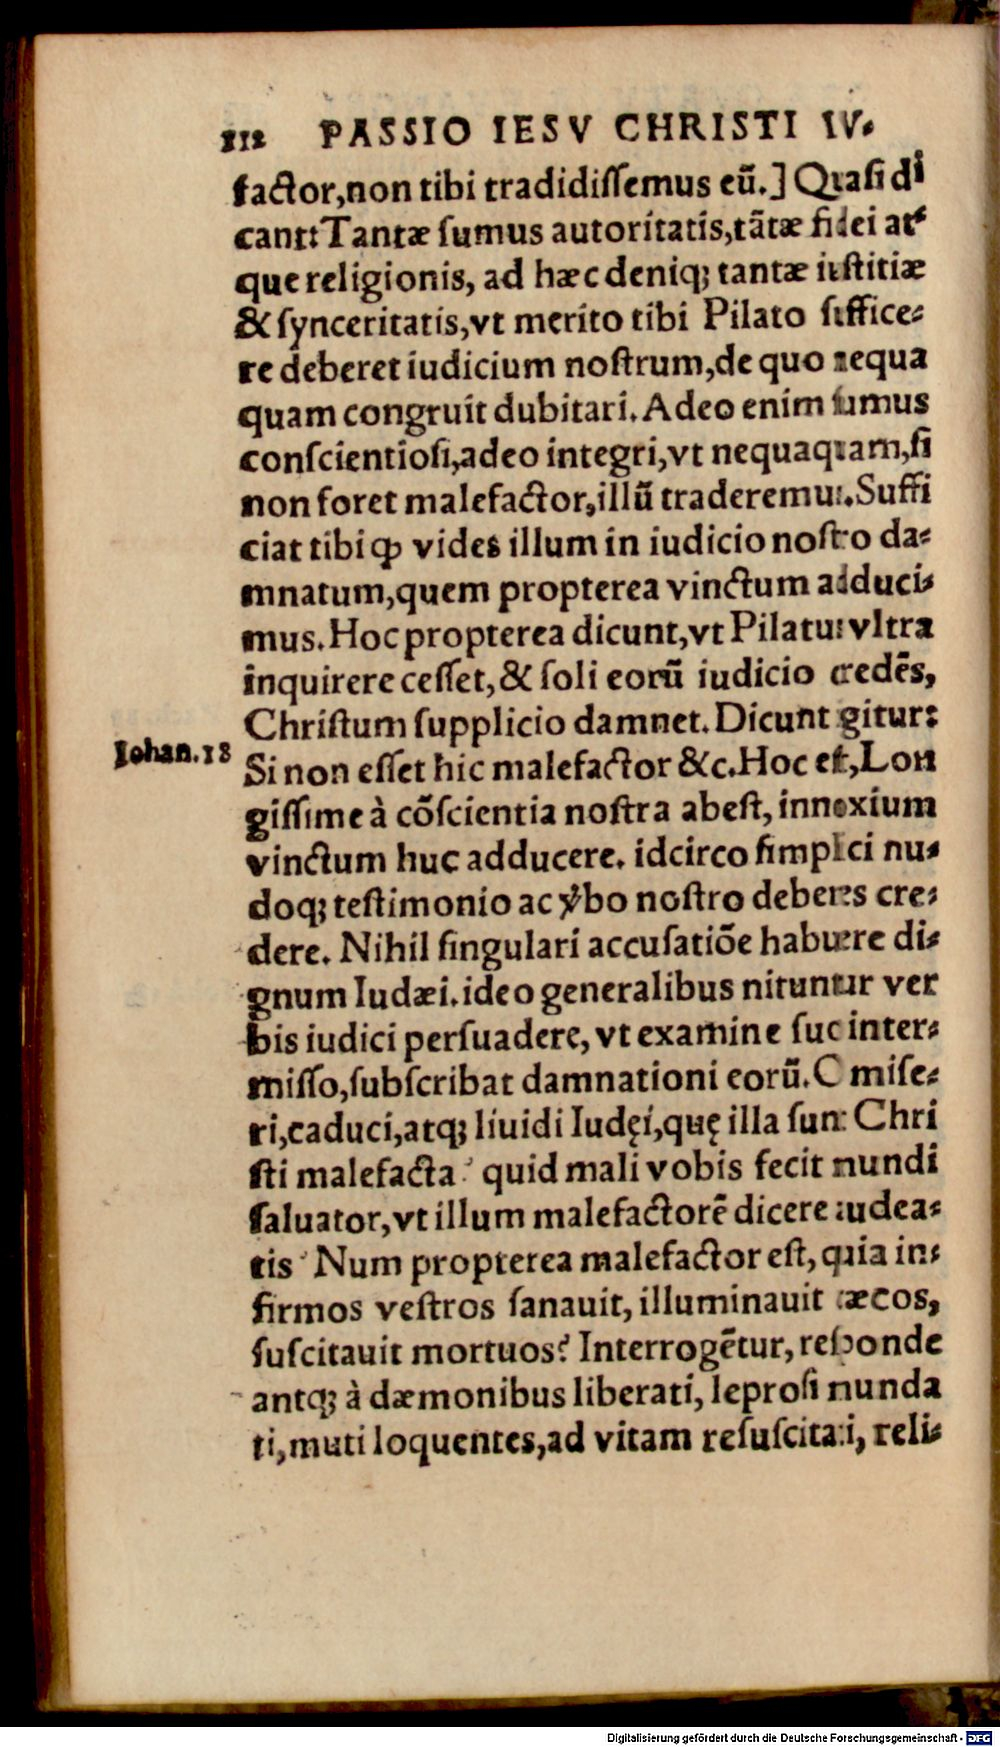 112 PASSIO IESV CHRISTI IV.
factor,non tibi tradidiſſemus eū.] Quaſi di
cant: Tantæ ſumus autoritatis,tātæ fidei at⸗
que religionis, ad hæc deniq; tantæ iuſtitiæ
& ſynceritatis,vt merito tibi Pilato ſuffice⸗
re deberet iudicium noſtrum,de quo nequa
quam congruit dubitari. Adeo enim ſumus
conſcientioſi,adeo integri,vt nequaquam,ſi
non foret malefactor,illū traderemus.Suffi
ciat tibi ꝙ vides illum in iudicio noſtro da⸗
mnatum,quem propterea vinctum adduci⸗
mus. Hoc propterea dicunt,vt Pilatus vltra
inquirere ceſſet,& ſoli eorū iudicio credēs,
Chriſtum ſupplicio damnet. Dicunt igitur:
Iohan.18
Si non eſſet hic malefactor &c.Hoc eſt,Lon
giſſime à cōſcientia noſtra abeſt, innoxium
vinctum huc adducere. idcirco ſimplici nu⸗
doq; teſtimonio ac v̓bo noſtro deberes cre⸗
dere. Nihil ſingulari accuſatiōe habuere di⸗
gnum Iudæi.ideo generalibus nituntur ver
bis iudici perſuadere,vt examine ſuo inter⸗
miſſo,ſubſcribat damnationi eorū.O miſe⸗
ri,caduci,atq; liuidi Iudęi,quę illa ſunt Chri
ſti malefacta? quid mali vobis fecit mundi
ſaluator,vt illum malefactorē dicere audea⸗
tis? Num propterea malefactor eſt, quia in⸗
firmos veſtros ſanauit, illuminauit cæcos,
ſuſcitauit mortuos? Interrogētur, reſponde
antq; à dæmonibus liberati, leproſi munda
ti,muti loquentes,ad vitam reſuſcitati, reli⸗
Digitalisierung gefördert durch die Deutsche Forschungsgemeinschaft - DFG